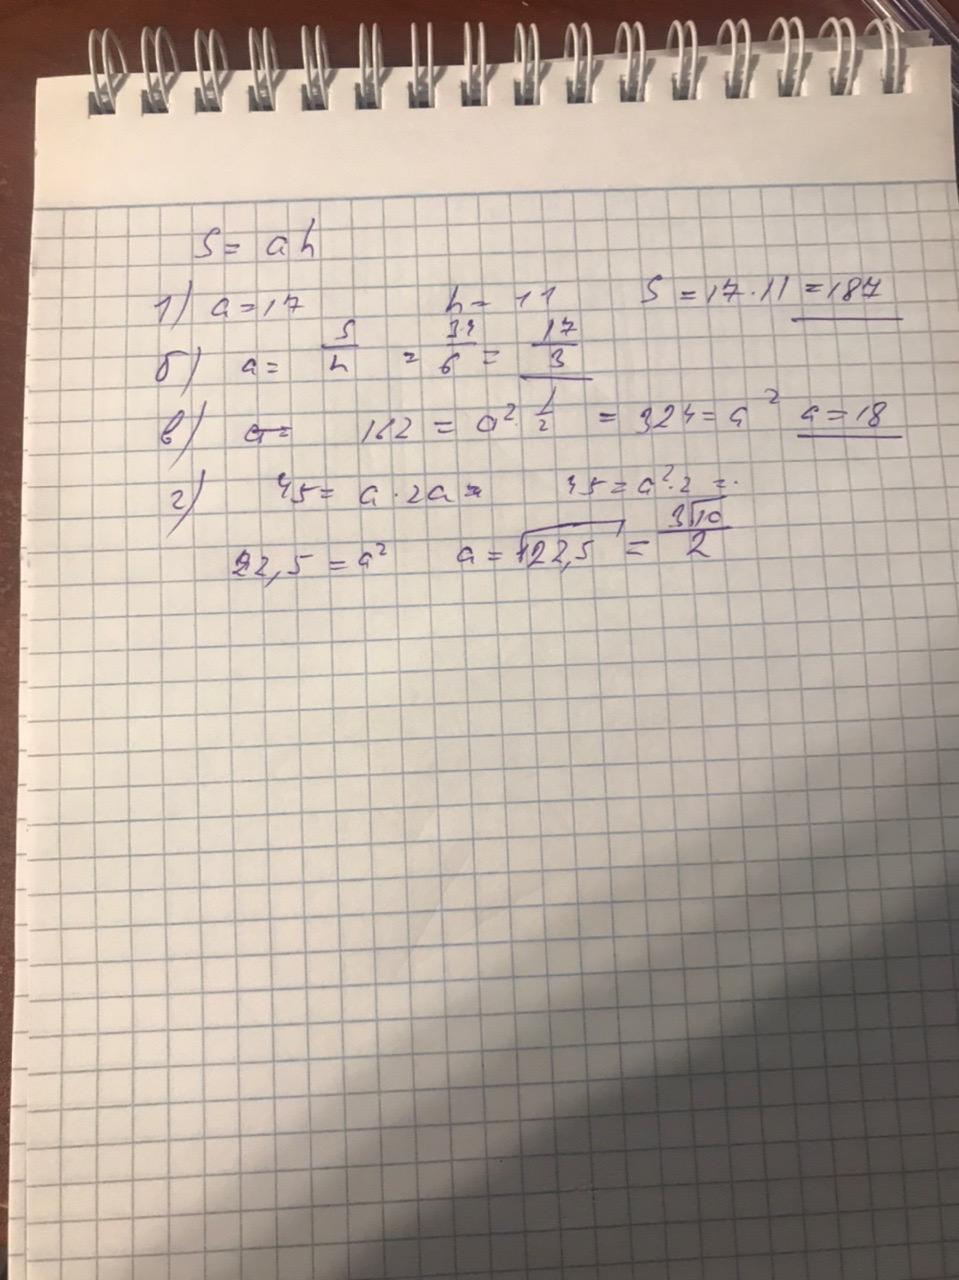 S = a h
1) a = 17 h = 11 S = 17 · 11 = 187
б) a = S/h = 34/6 = 17/3
в) a = 162 = a² · 1/2 = 324 = a² a = 18
г) 45 = a · 2a = 45 = a² · 2 = ·
22,5 = a² a = √22,5 = 3√10/2